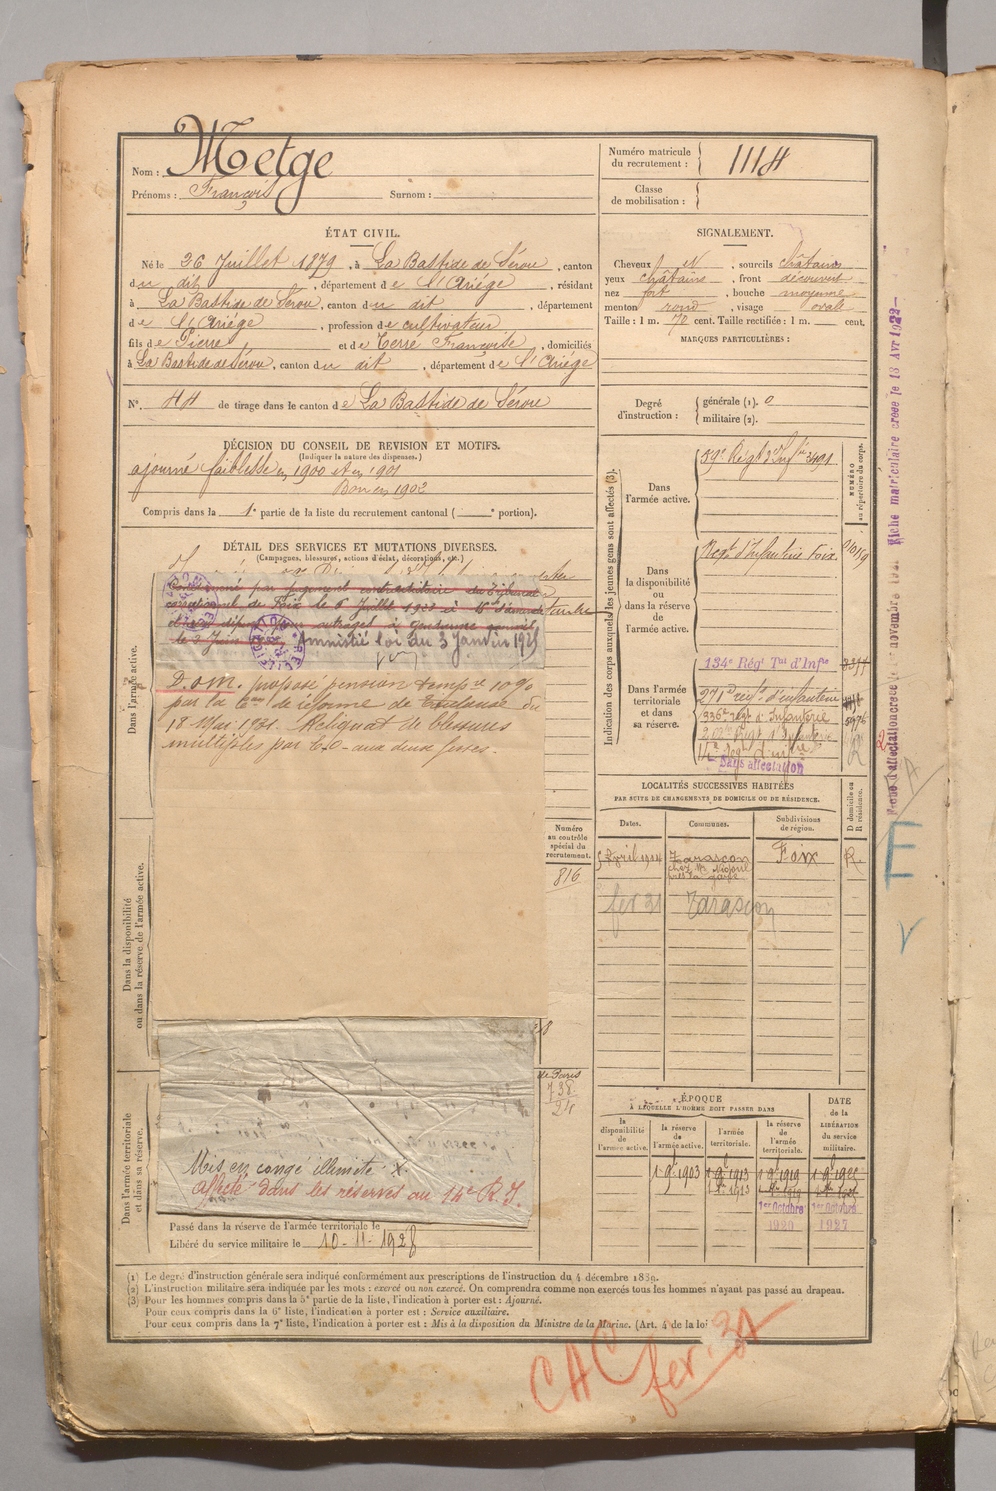 Nom : Metge
Prénoms : François Surnom :
Numéro matricule
du recrutement : 1114
Classe
de mobilisation :
ÉTAT CIVIL.
Né le 26 Juillet 1879, à La Bastide de Sérou, canton
du dit, département de l'Ariège, résidant
à La Bastide de Sérou, canton du dit, département
de l'Ariége, profession de cultivateur
fils de Pierre et de Terré Françoise, domiciliés
à La Bastide de Sérou, canton du dit, département de l'Ariége
N° 44 de tirage dans le canton de La Bastide de Sérou
SIGNALEMENT.
Cheveux et , sourcils châtains
yeux châtains, front découvert
nez fort, bouche moyenne
menton rond, visage ovale
Taille : 1 m. 70 cent. Taille rectifiée : 1 m. cent.
MARQUES PARTICULIÈRES :
Degré
d'instruction :
générale (1). 0
militaire (2).
DÉCISION DU CONSEIL DE REVISION ET MOTIFS.
(Indiquer la nature des dispenses.)
ajourné faiblesse en 1900 et en 1901
Bon en 1902
Compris dans la 1e partie de la liste du recrutement cantonal ( e portion).
DÉTAIL DES SERVICES ET MUTATIONS DIVERSES.
(Campagnes, blessures, actions d'éclat, décorations, etc.)
Condamné par jugement contradictoire du tribunal
correctionnel de Foix le 6 Juillet 1921 à 16 f d'amende
pour outrages à gendarme
le 3 Juin Amnistié loi du 3 Janvier 1925
D.O.M. propose pension tempre 10%
par la Con de réforme de Toulouse du
18 Mai 1931. Reliquat de blessures
multiples par E.O. aux deux fesses.
Mis en congé illimité X.
Affecté dans les réserves au 14e R.I.
Dans l'armée active.
Dans la disponibilité
ou dans la réserve de l'armée active.
Dans l'armée territoriale
et dans sa réserve.
Numéro
au contrôle
spécial du
recrutement.
816
de Paris
738
24
Passé dans la réserve de l'armée territoriale le
Libéré du service militaire le 10-11-1928
Indication des corps auxquels les jeunes gens sont affectés (3).
NUMÉRO
au répertoire du corps.
Dans
l'armée active.
59e Régt d'Infie 3491
Dans
la disponibilité
ou dans
la réserve de
l'armée active.
Regt d'Infanterie Foix
Dans l'armée
territoriale
et dans
sa réserve.
134e Régt Tal d'Infie
271e regt d'infanterie
336e regt d'Infanterie 5976
14e Regt d'infie
Sans affectation
LOCALITÉS SUCCESSIVES HABITÉES
PAR SUITE DE CHANGEMENTS DE DOMICILE OU DE RÉSIDENCE.
D domicile ou
R résidence.
Dates.
Communes.
Subdivisions
de région.
Avril 1924 Tarascon Foix R.
près la gare
fer 31 Tarascon
ÉPOQUE
À LAQUELLE L'HOMME DOIT PASSER DANS
DATE
de la
LIBÉRATION
du service
militaire.
la
disponibilité
de
l'armée active.
la réserve
de
l'armée active.
l'armée
territoriale.
la réserve
de
l'armée
territoriale.
1 9 1903 1 9 1913 1 9 1919 1 9 1925
1er Octobre 1er Octobre
1920 1927
Fiche matriculaire créée le 18 Avr 1922
(1) Le degré d'instruction générale sera indiqué conformément aux prescriptions de l'instruction du 4 décembre 1889.
(2) L'instruction militaire sera indiquée par les mots : exercé ou non exercé. On comprendra comme non exercés tous les hommes n'ayant pas passé au drapeau.
(3) Pour les hommes compris dans la 5e partie de la liste, l'indication à porter est : Ajourné.
Pour ceux compris dans la 6e liste, l'indication à porter est : Service auxiliaire.
Pour ceux compris dans la 7e liste, l'indication à porter est : Mis à la disposition du Ministre de la Marine. (Art. 4 de la loi
CAC fer. 31